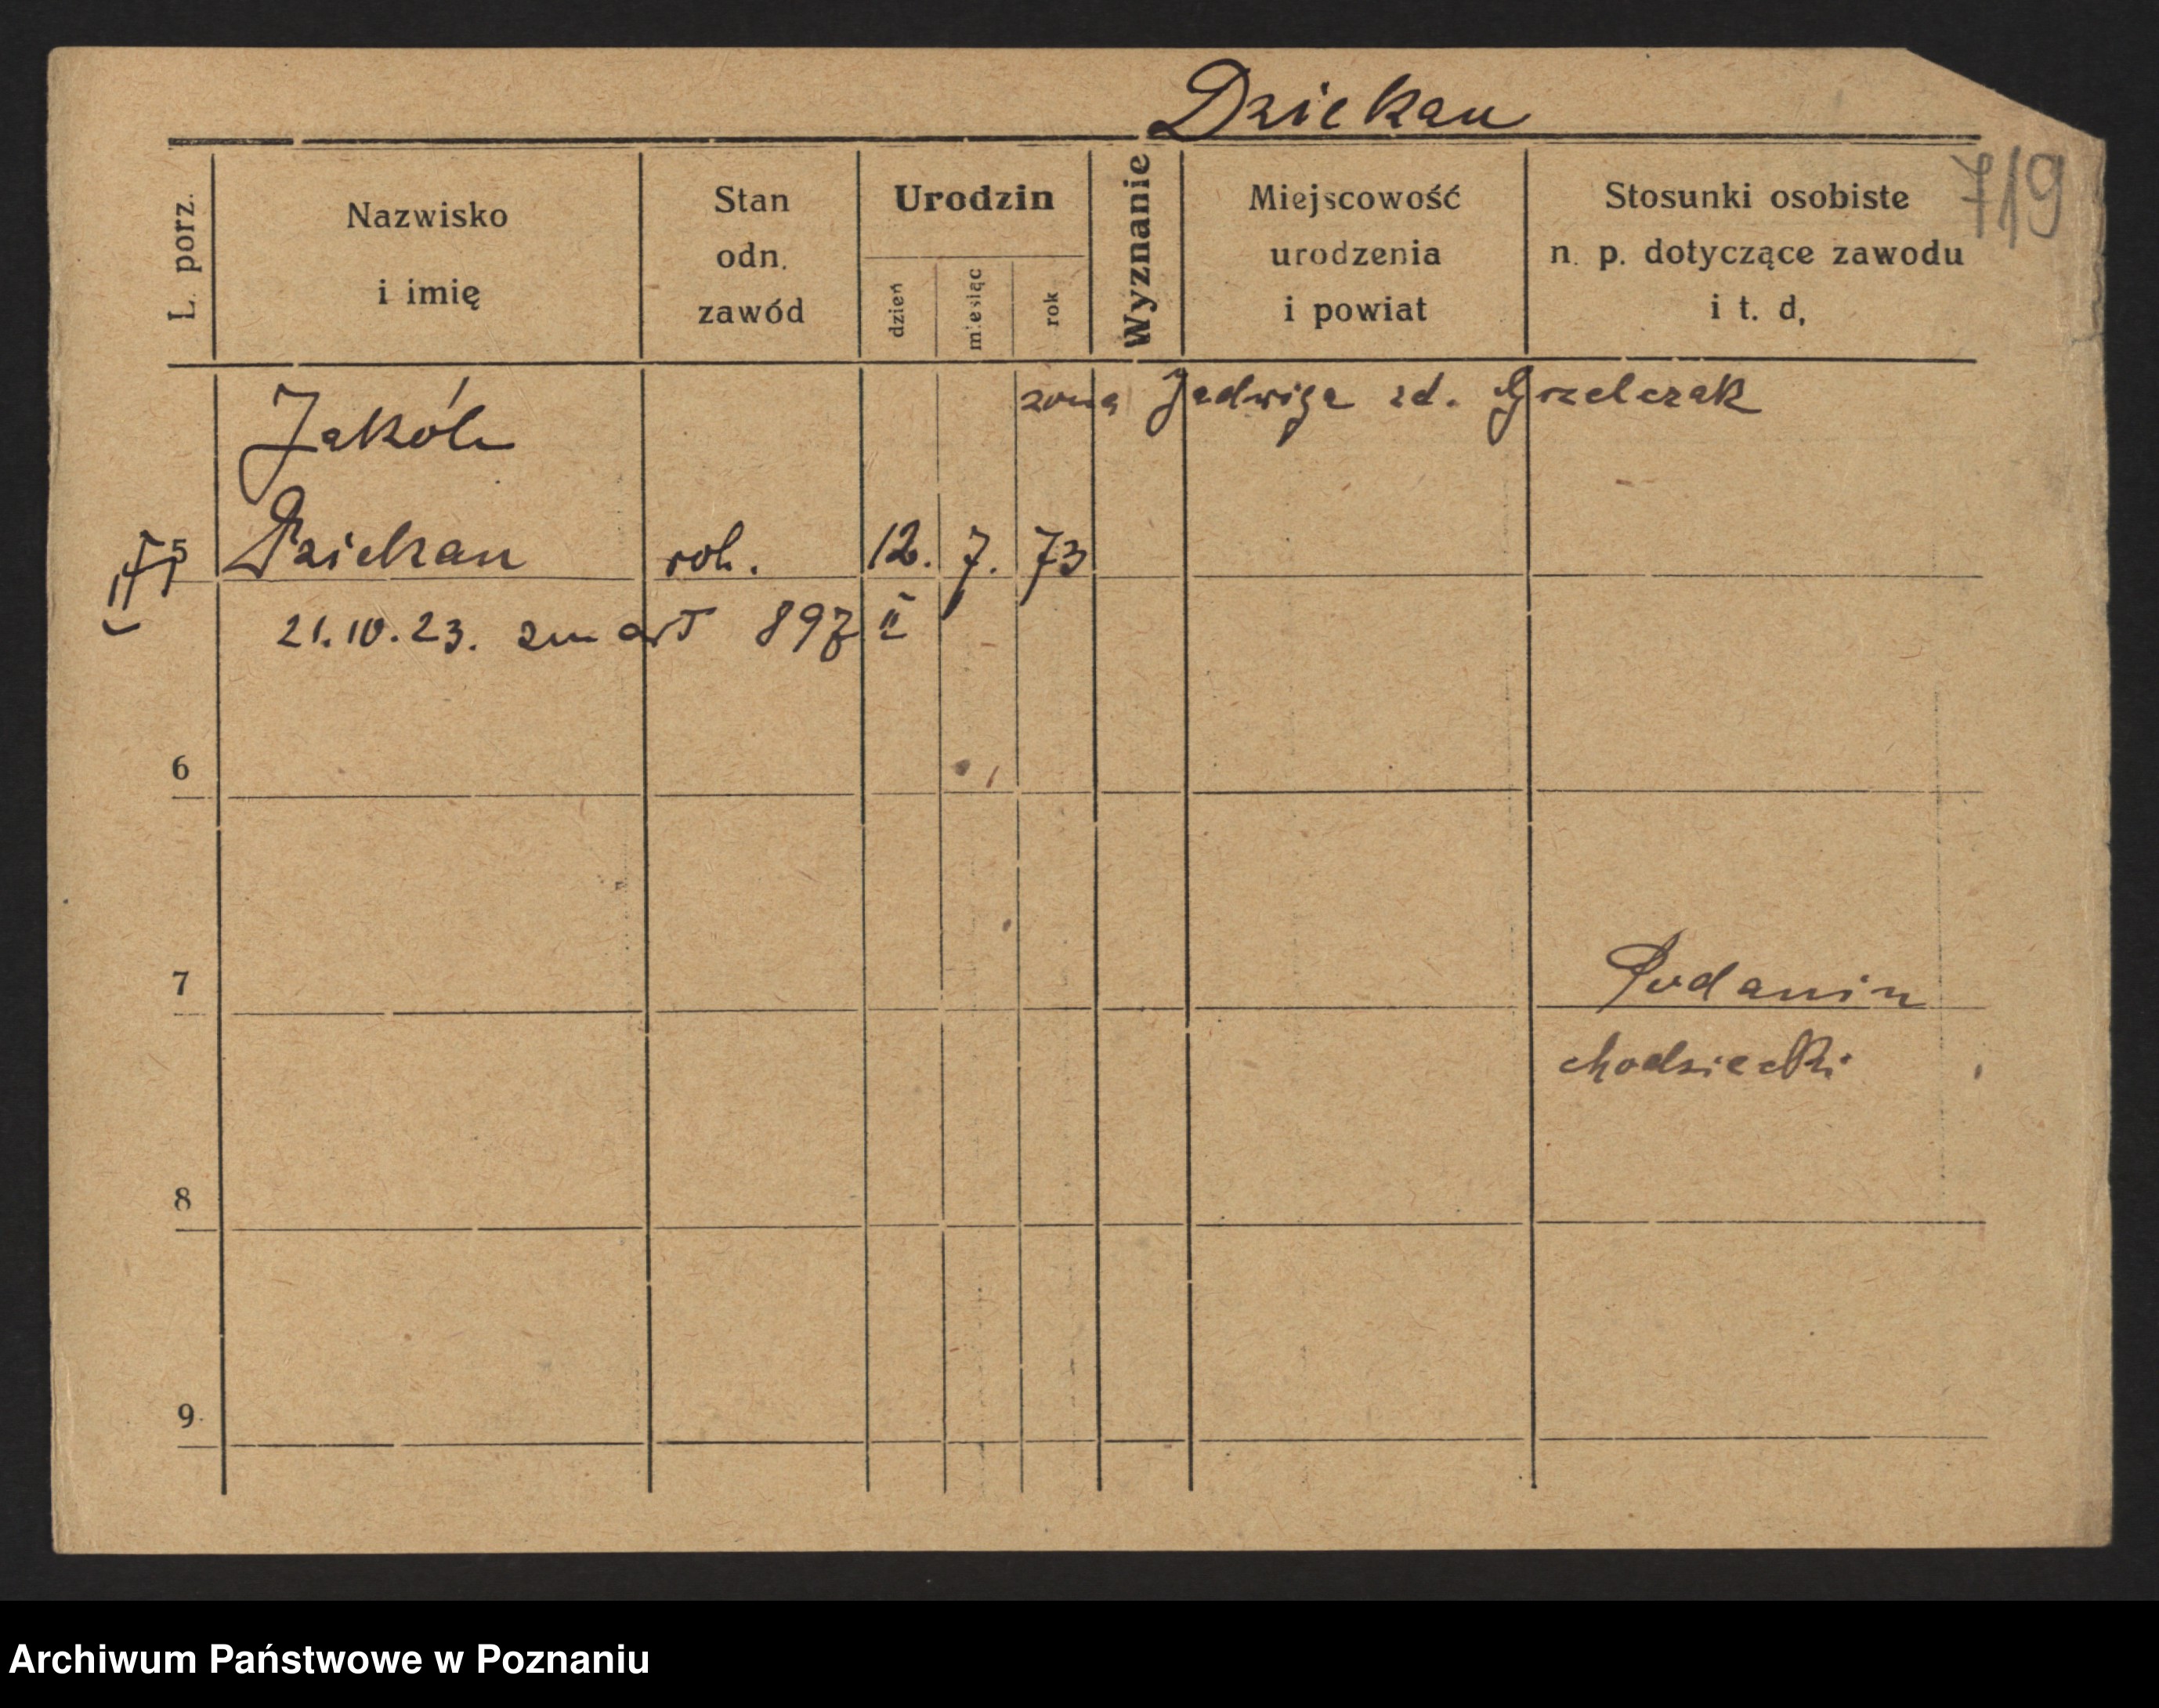 Dziekan
719
L. porz.
Nazwisko
i imię
Stan
odn.
zawód
Urodzin
dzień
miesiąc
rok
Wyznanie
Miejscowość
urodzenia
i powiat
Stosunki osobiste
n. p. dotyczące zawodu
i t. d.
żona Jadwiga zd. Grzelczak
Jakób
5 Dziekan rob. 12. 7. 73
21.10.23. zmarł 897 II
6
7
Podanin
chodzieski
8
9
Archiwum Państwowe w Poznaniu